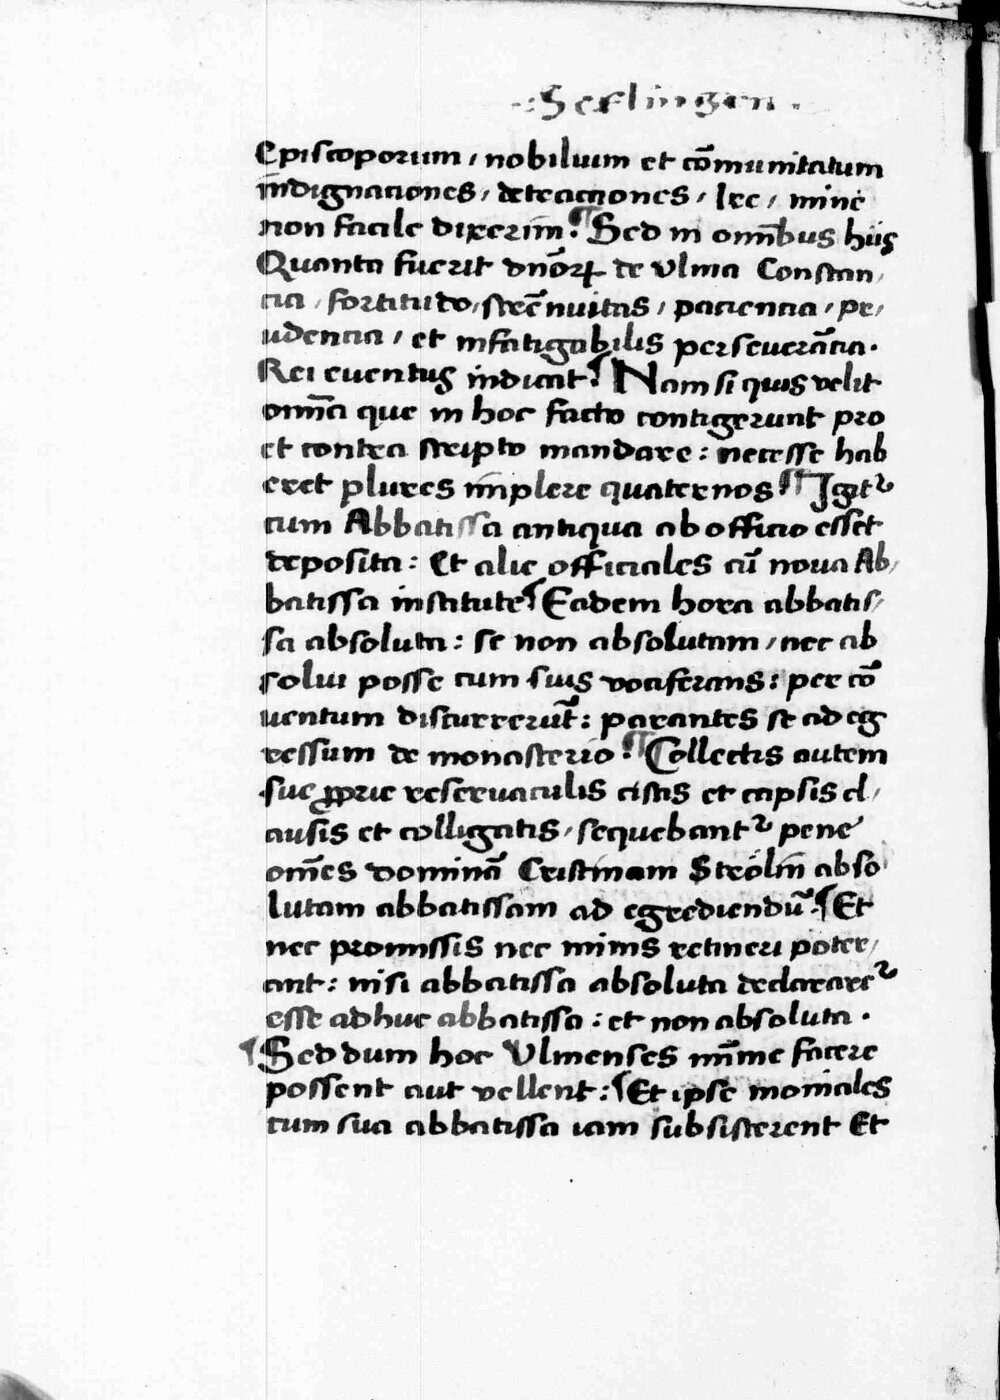 ·:Seflingen·
Episcoporum / nobilium et co͞munitatum
indignaciones / detracciones / lec / mine
non facile dixerim. ¶ Sed in omnibus hijs
Quanta fuerit dn͞orꝝ de Ulma Constan/
cia / fortitudo / stre͞nuitas / paciencia / pr/
udencia / et infatigabilis perseuera͞cia.
Rei euentus indicat. ¶ Nam si quis velit
omn͞ia que in hoc facto contigerunt pro
et contra scripto mandare: necesse hab
eret plures implere quaternos. ¶ Igit᷑
cum Abbatissa antiqua ab officio esset
deposita: Et alie officiales cu͞ noua Ab/
batissa institute. ¶ Eadem hora abbatis/
sa absoluta: se non absolutam / nec ab
solui posse cum suis vociferans: per co͞
uentum discurreru͞t: parantes se ad eg
ressum de monasterio. ¶ Collectis autem
sue ꝓprie reseruaculis cistis et capsis cl/
ausis et colligatis / sequebant᷑ pene
om͞es domina͞ Cristinam Strölin abso
lutam abbatissam ad egrediendu͞. ¶ Et
nec promissis nec minis retineri poter/
ant: nisi abbatissa absoluta declararet᷑
esse adhuc abbatissa: et non absoluta.
¶ Sed dum hoc Vlmenses mi͞me facere
possent aut vellent: ¶ Et ipse moniales
cum sua abbatissa iam subsisterent Et